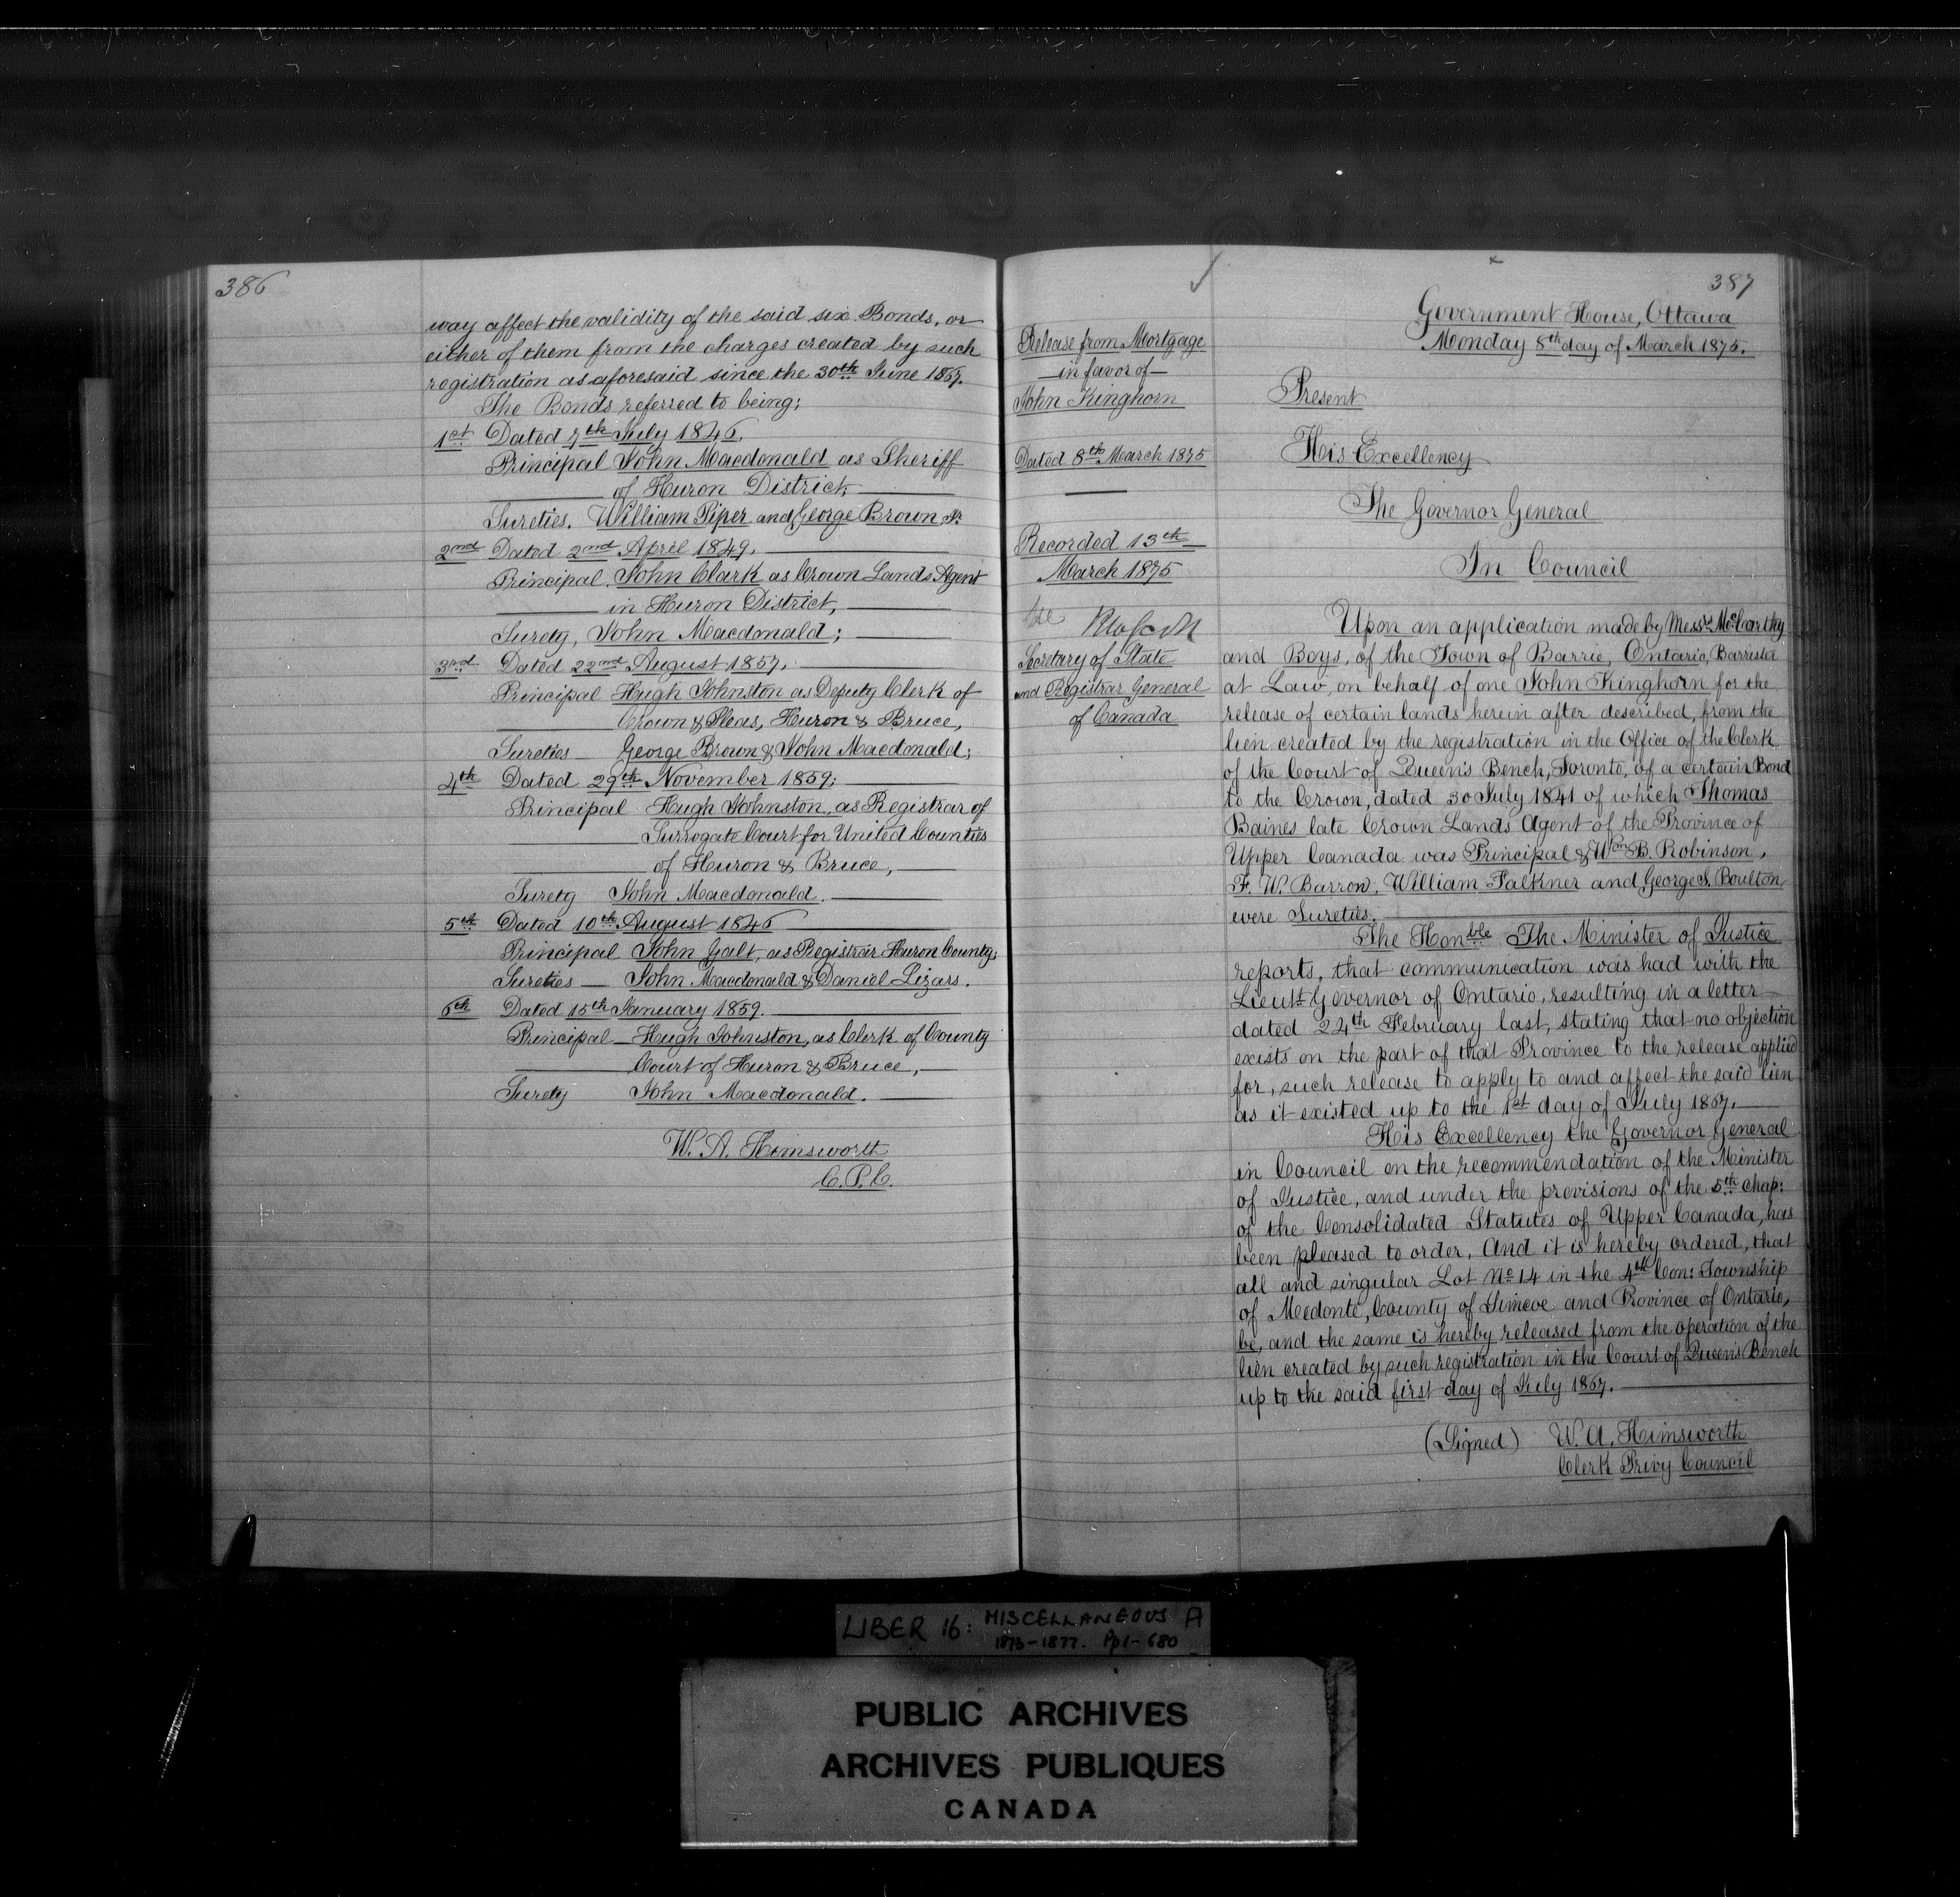 386
way affect the validity of the said six Bonds, or
either of them from the charges created by such
registration as aforesaid since the 30th June 1867.
The Bonds referred to being;
1st Dated 7th July 1846.
Principal John Macdonald as Sheriff
of Huron District,
Sureties. William Piper and George Brown Jr.
2nd Dated 2nd April 1849.
Principal. John Clark as Crown Lands Agent
in Huron District,
Surety, John Macdonald;
3rd Dated 22nd August 1857.
Principal Hugh Johnston as Deputy Clerk of
Crown & Pleas, Huron & Bruce,
Sureties George Brown & John Macdonald;
4th Dated 29th November 1859;
Principal Hugh Johnston, as Registrar of
Surrogate Court for United Counties
of Huron & Bruce,
Surety John Macdonald.
5th Dated 10th August 1846
Principal John Galt, as Registrar Huron County;
Sureties John Macdonald & Daniel Lizars.
6th Dated 15th January 1859.
Principal Hugh Johnston, as Clerk of County
Court of Huron & Bruce,
Surety John Macdonald.
W. A. Himsworth
C.P.C.
387
Release from Mortgage
in favor of
John Kinghorn
Dated 8th March 1875
Recorded 13th
March 1875
Secretary of State
and Registrar General
of Canada
Government House, Ottawa
Monday 8th day of March 1875.
Present
His Excellency
The Governor General
In Council
Upon an application made by Messrs McCarthy
and Boys, of the Town of Barrie, Ontario, Barrister
at Law, on behalf of one John Kinghorn for the
release of certain lands herein after described, from the
lien created by the registration in the Office of the Clerk
of the Court of Queen's Bench, Toronto, of a certain Bond
to the Crown, dated 30 July 1841 of which Thomas
Baines late Crown Lands Agent of the Province of
Upper Canada was Principal & Wm B. Robinson,
F. W. Barron, William Falkner and George S. Boulton
were Sureties.
The Honble The Minister of Justice
reports, that communication was had with the
Lieut. Governor of Ontario, resulting in a letter
dated 24th February last, stating that no objection
exists on the part of that Province to the release applied
for, such release to apply to and affect the said lien
as it existed up to the 1st day of July 1867.
His Excellency the Governor General
in Council on the recommendation of the Minister
of Justice, and under the provisions of the 5th Chap:
of the Consolidated Statutes of Upper Canada, has
been pleased to order, And it is hereby ordered, that
all and singular Lot No 14 in the 4th Con: Township
of Medonte, County of Simcoe and Province of Ontario,
be, and the same is hereby released from the operation of the
lien created by such registration in the Court of Queen's Bench
up to the said first day of July 1867.
(Signed) W. A. Himsworth
Clerk Privy Council
LIBER 16: MISCELLANEOUS A
1873-1877. Pp 1-680
PUBLIC ARCHIVES
ARCHIVES PUBLIQUES
CANADA